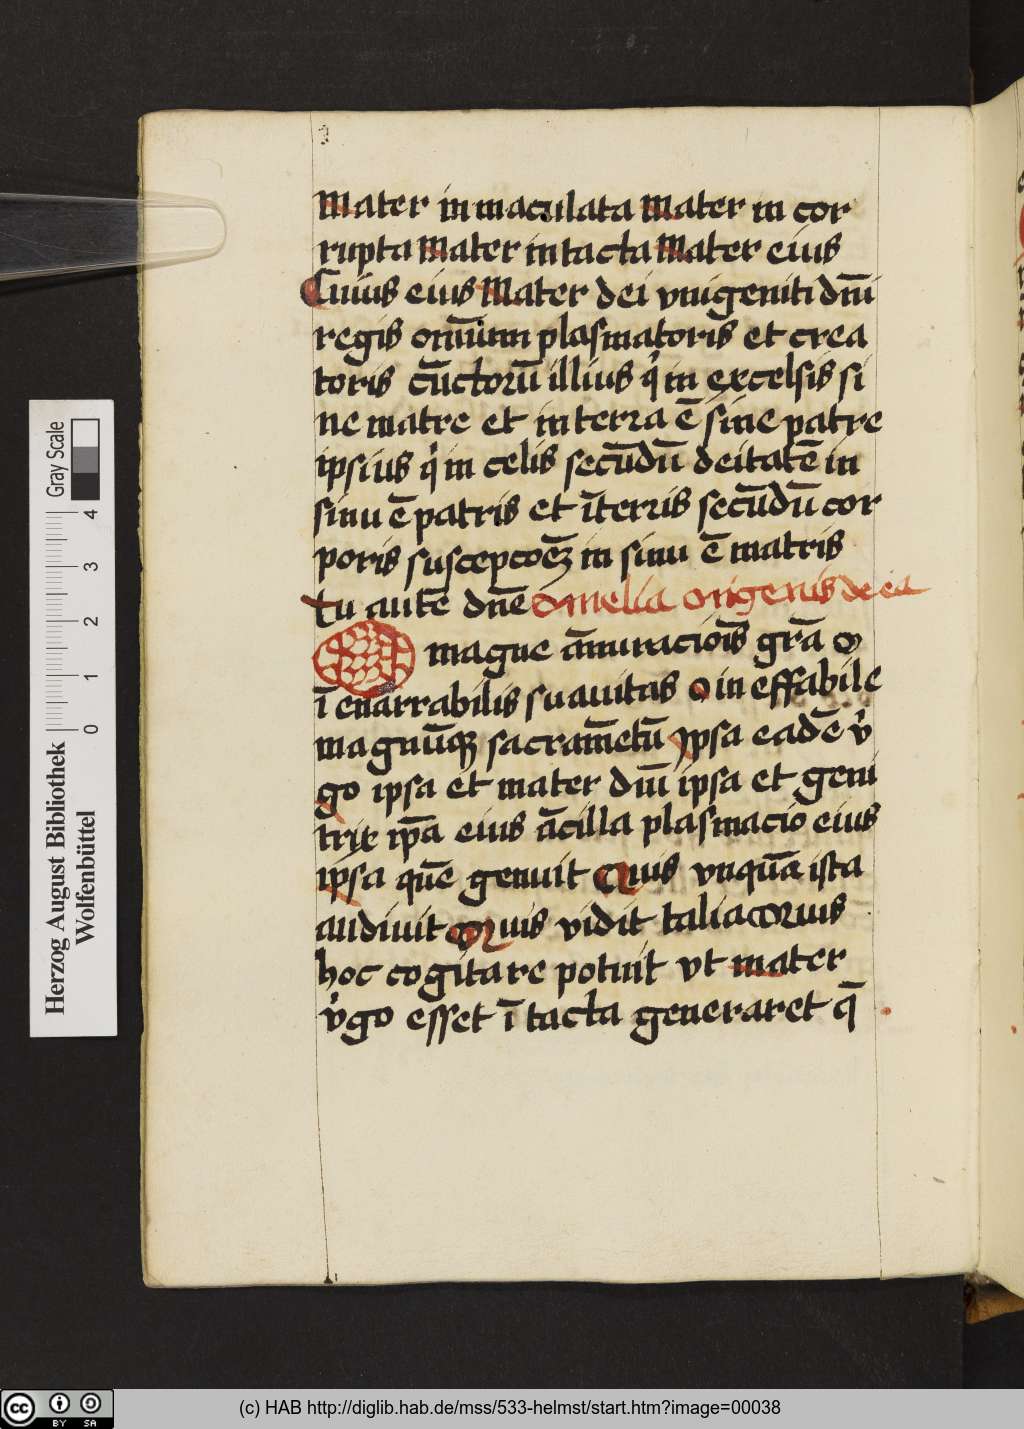 Mater in maculata Mater in cor
rupta Mater intacta Mater eius
Cuius eius Mater dei vnigeniti dn̄i
regis om̄nium plasmatoris et crea
toris cūctorū illius q̇ in excelsis si
ne matre et in terra ē sine patre
ipsius q̇ in celis secūdū deitatē in
sinu ē patris et īterris secūdū cor
poris suscepcoēꝫ in sinu ē matris
tu autē dn̄e Omelia Origenis de ea
O magne ām̄iracioīs gr̄a O
īenarrabilis suauitas O in effabile
magnūqꝫ sacram̄etū Ipsa eadē v̇
go ipsa et mater dn̄i ipsa et geni
trix ip̄a eius ācilla plasmacio eius
ipsa quē genuit Quis vnquā ista
audiuit Quis vidit talia
hoc cogitare potuit vt mater
v̇go esset ītacta generaret q̄
Herzog August Bibliothek
Wolfenbüttel
0 1 2 3 4
Gray Scale
cc BY SA
(c) HAB http://diglib.hab.de/mss/533-helmst/start.htm?image=00038